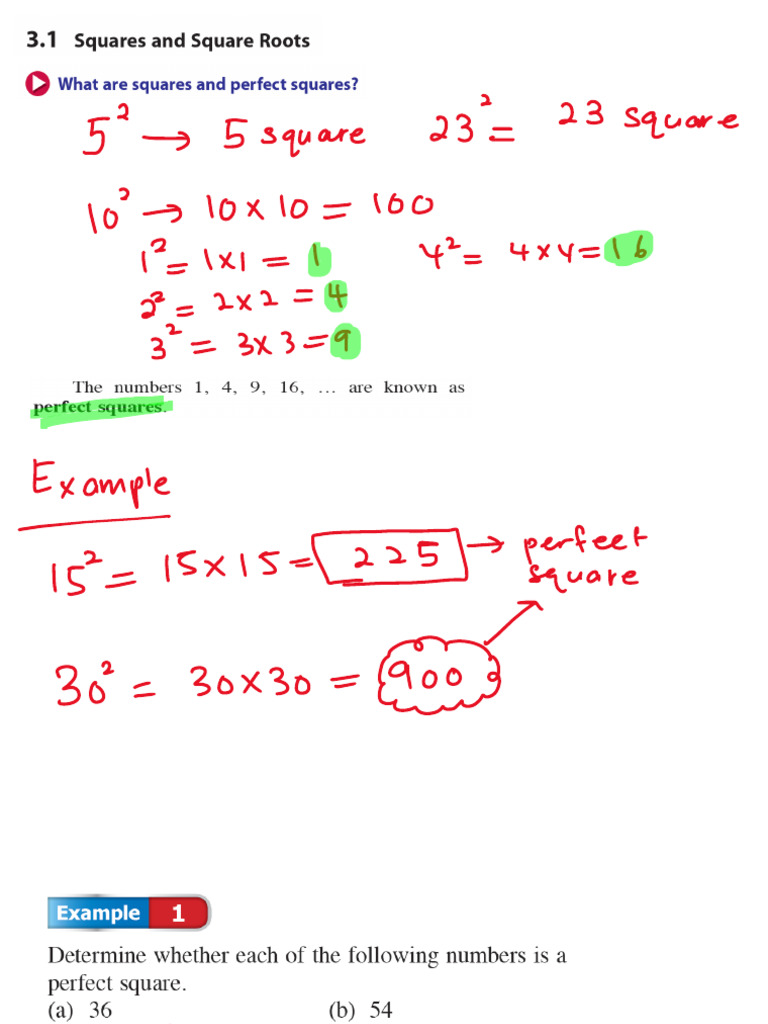 3.1 Squares and Square Roots
What are squares and perfect squares?
5² → 5 square 23² = 23 square
10² → 10 × 10 = 100
1² = 1×1 = 1 4² = 4×4 = 16
2² = 2×2 = 4
3² = 3×3 = 9
The numbers 1, 4, 9, 16, … are known as
perfect squares.
Example
15² = 15×15 = 225 → perfect
square
30² = 30×30 = 900
Example 1
Determine whether each of the following numbers is a
perfect square.
(a) 36 (b) 54